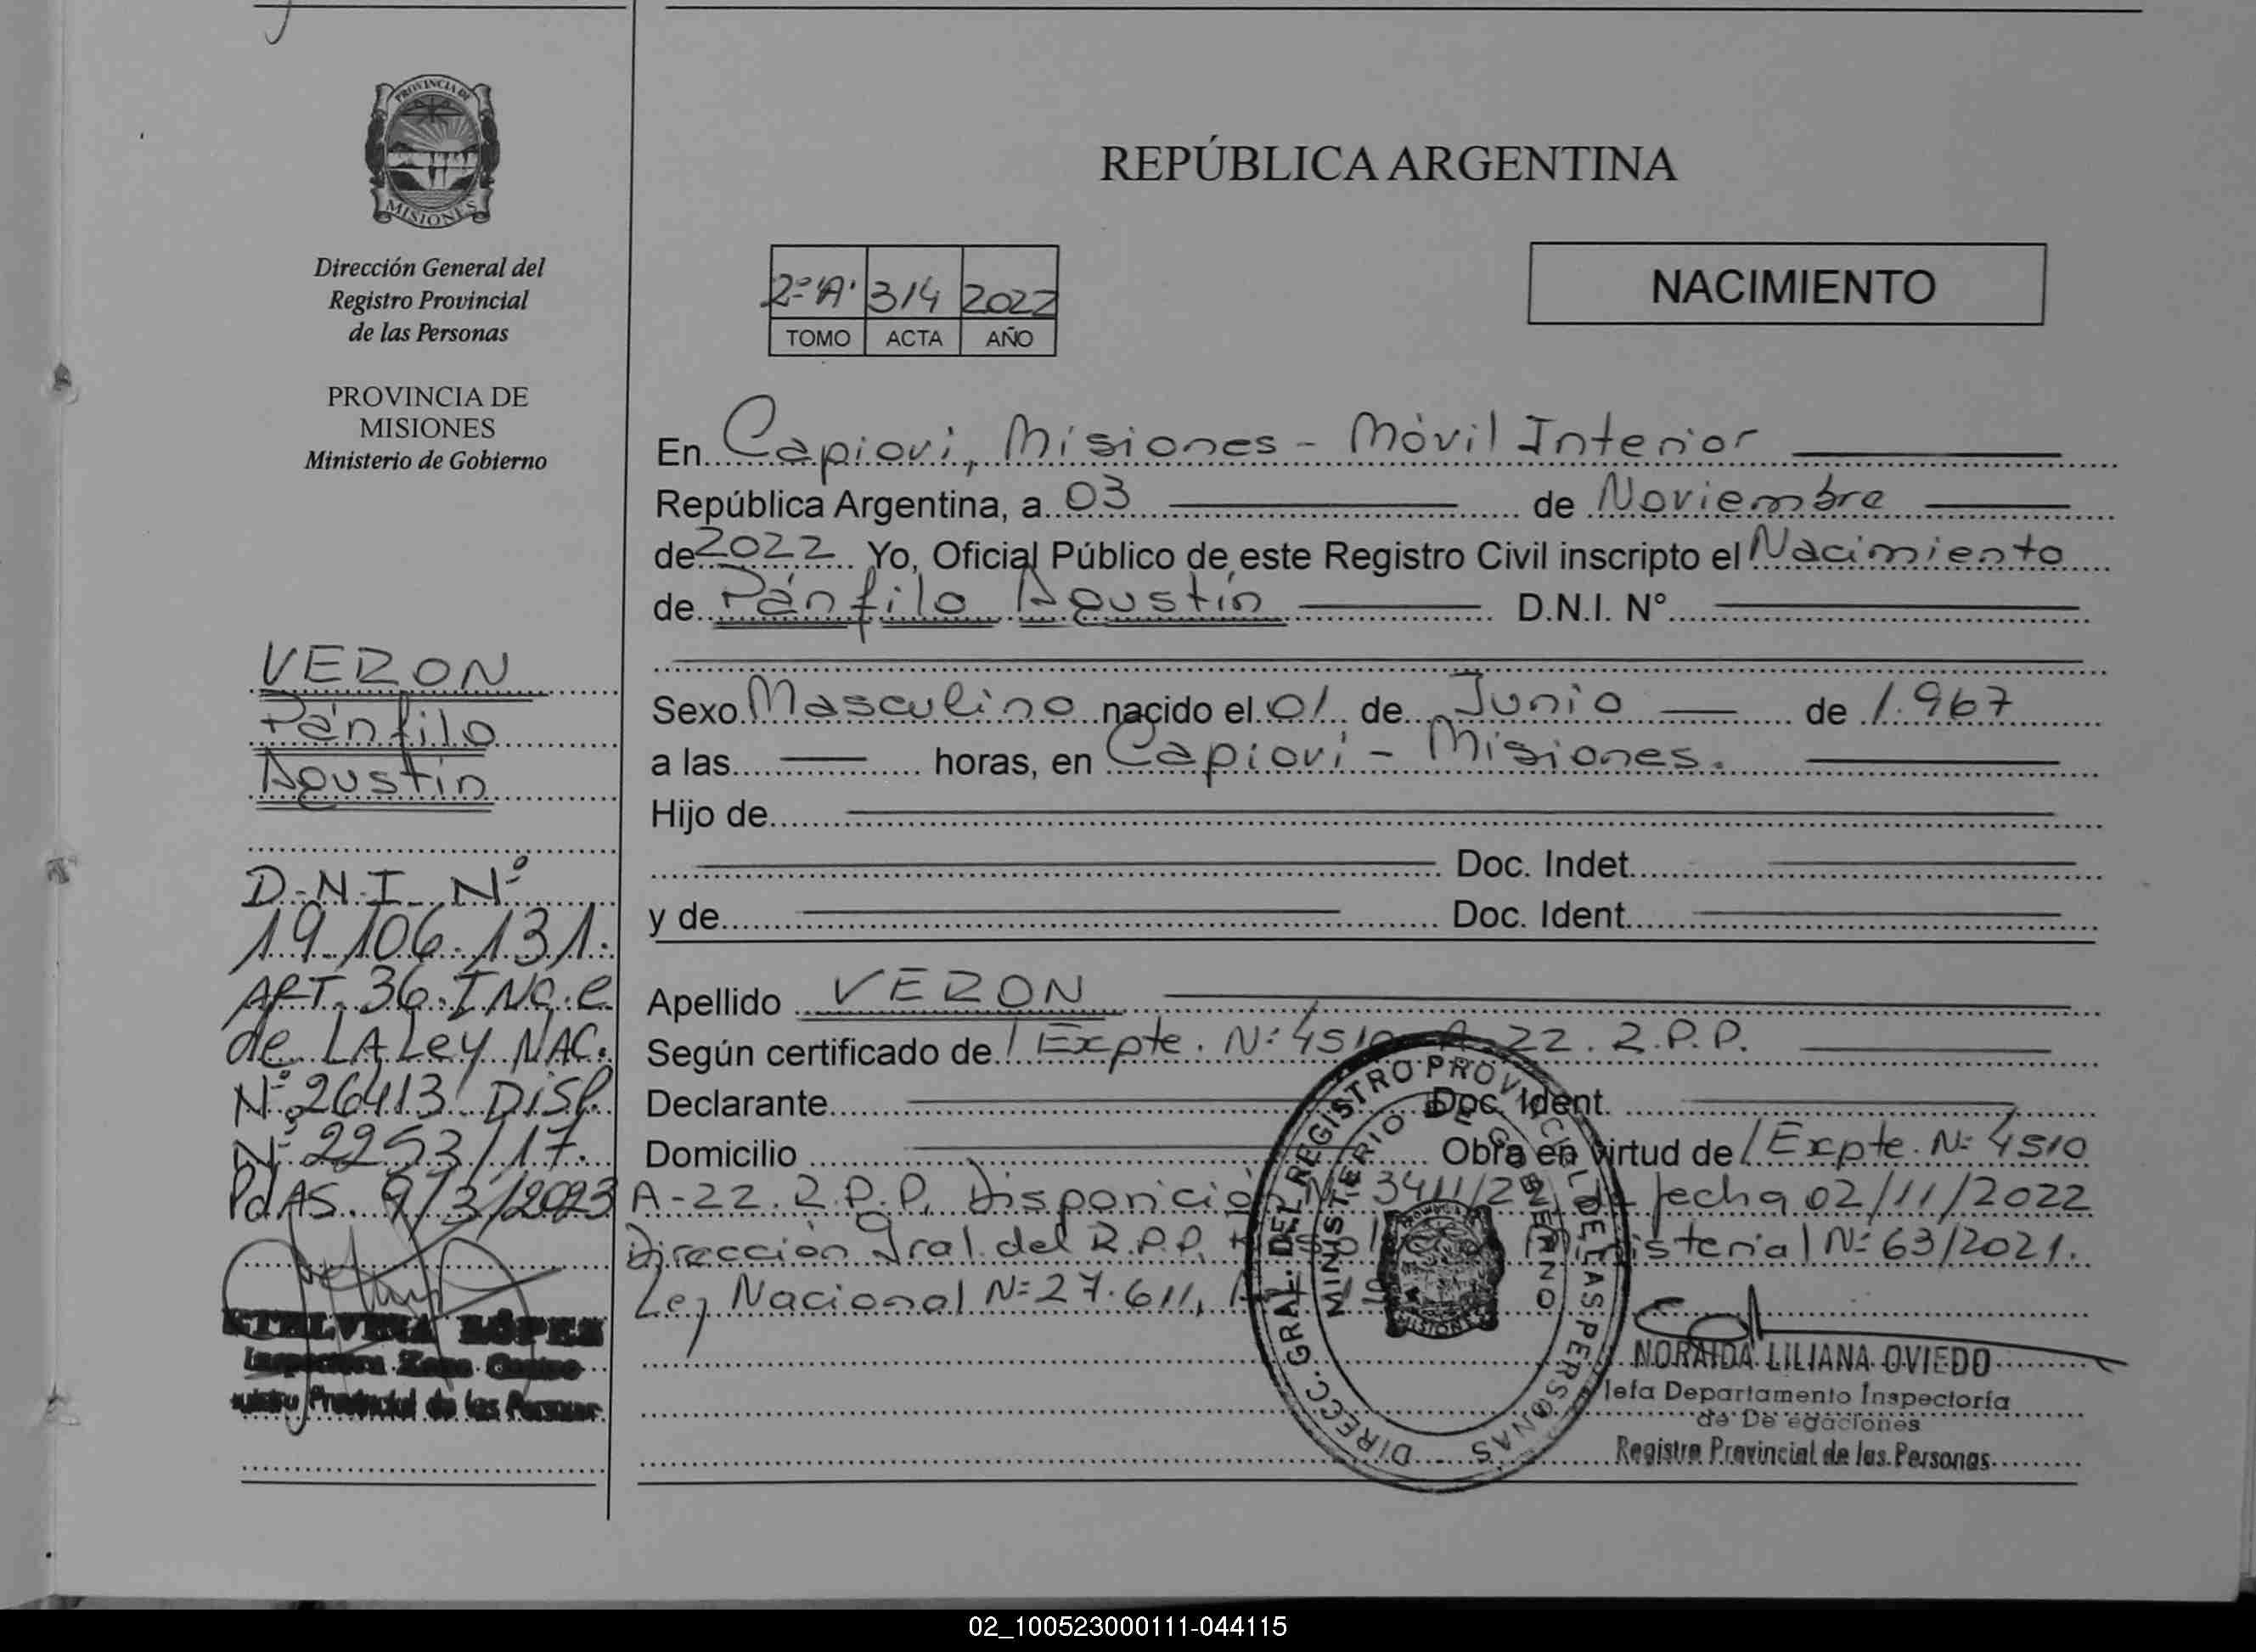 PROVINCIA DE
MISIONES
Dirección General del
Registro Provincial
de las Personas
PROVINCIA DE
MISIONES
Ministerio de Gobierno
VERON
Pánfilo
Agustín
D.N.I. Nº
19.106.131.
ART. 36. INC. e
de LA Ley NAC.
Nº 26413 DISP.
Nº 2253/17.
PdAS. 9/3/2023
ETELVINA LÓPEZ
Inspectora Zona Centro
Provincial de las Personas
REPÚBLICA ARGENTINA
2º "A" 314 2022
TOMO ACTA AÑO
NACIMIENTO
En Capioví, Misiones - Móvil Interior
República Argentina, a 03 de Noviembre
de 2022 Yo, Oficial Público de este Registro Civil inscripto el Nacimiento
de Pánfilo Agustín D.N.I. N°
Sexo Masculino nacido el 01 de Junio de 1.967
a las horas, en Capioví - Misiones.
Hijo de
Doc. Indet.
y de Doc. Ident.
Apellido VERON
Según certificado de Expte. Nº 4510 A-22. R.P.P.
Declarante Doc. Ident.
Domicilio Obra en virtud de Expte. Nº 4510
A-22. R.P.P. Disposición Nº 3411/22 de fecha 02/11/2022
Dirección Gral. del R.P.P. Ministerial Nº 63/2021.
Ley Nacional Nº 27.611,
DIRECC. GRAL. DEL REGISTRO PROVINCIAL DE LAS PERSONAS
MINISTERIO DE GOBIERNO
MISIONES
NORAIDA LILIANA OVIEDO
Jefa Departamento Inspectoría
de Delegaciones
Registro Provincial de las Personas
02_100523000111-044115